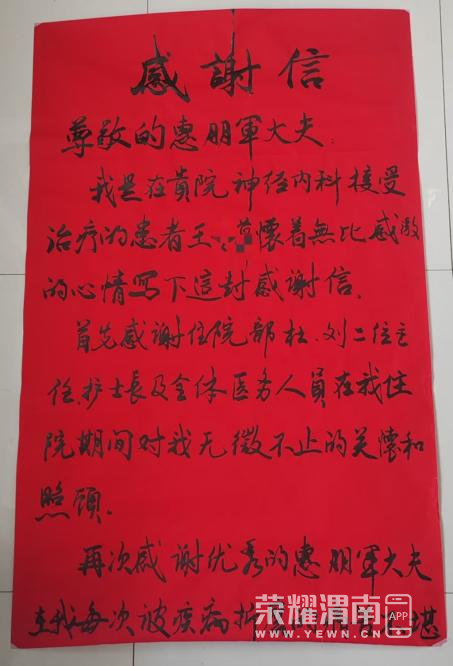 感謝信
尊敬的惠朋軍大夫：
我是在貴院神经内科接受
治疗的患者王 懷着無比感激
的心情写下這封感謝信.
首先感謝住院部杜、刘二位主
任、护士長及全体医务人員在我住
院期间对我无微不止的关懷和
照顧.
再次感謝优秀的惠朋軍大夫
在我每次被疾病折 堪
荣耀渭南 APP
WWW.YEWN.CN